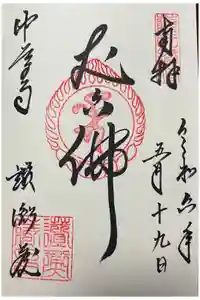 奉拝
令和六年
五月十九日
丈六佛
中尊寺
讃衡蔵